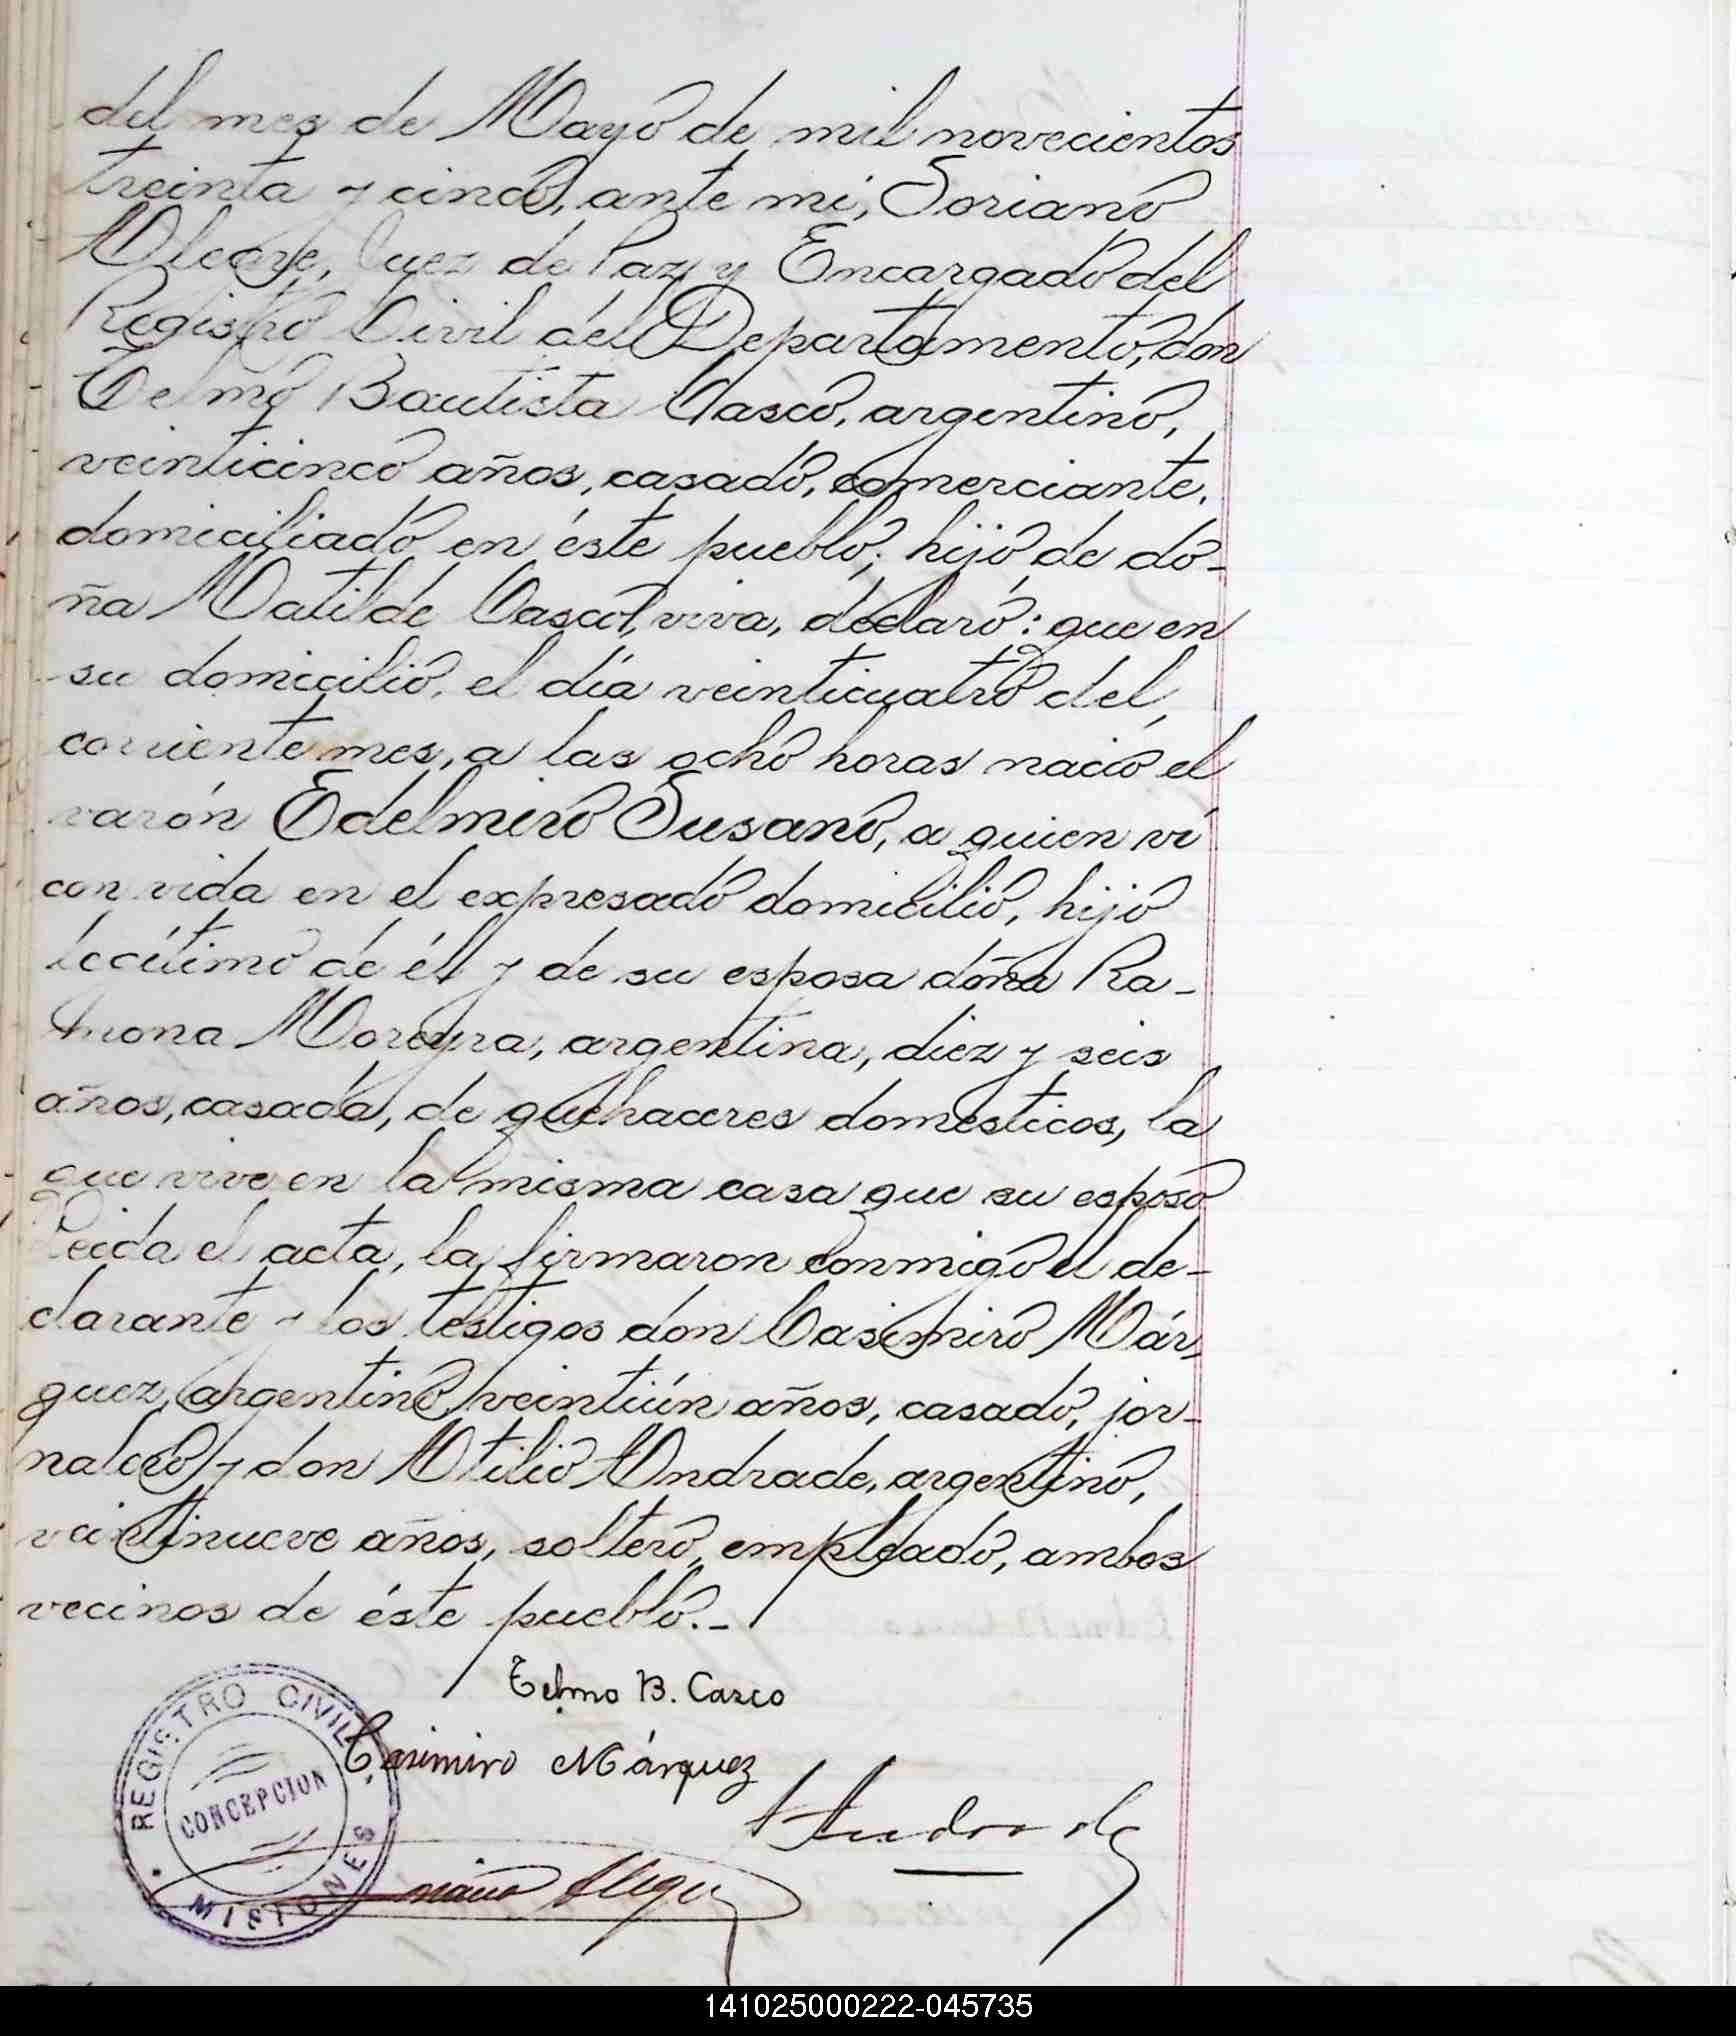 del mes de Mayo de mil novecientos
treinta y cinco, ante mi, Soriano
Alegre, Juez de Paz y Encargado del
Registro Civil del Departamento, don
Telmo Bautista Casco, argentino,
veinticinco años, casado, comerciante,
domiciliado en éste pueblo; hijo de do-
ña Matilde Casco, viva, declaró: que en
su domicilio, el día veinticuatro del
corriente mes, a las ocho horas nació el
varón Edelmiro Susano, a quien vi
con vida en el expresado domicilio, hijo
legítimo de él y de su esposa doña Ra-
mona Moreyra, argentina, diez y seis
años, casada, de quehaceres domesticos, la
que vive en la misma casa que su esposo
Leida el acta, la firmaron conmigo el de-
clarante y los testigos don Casimiro Már-
quez, argentino, veintiún años, casado, jor-
nalero y don Otilio Andrade, argentino,
veintinueve años, soltero, empleado, ambos
vecinos de éste pueblo.-
Telmo B. Casco
Casimiro Márquez
Andrade
REGISTRO CIVIL
CONCEPCION
MISIONES
141025000222-045735